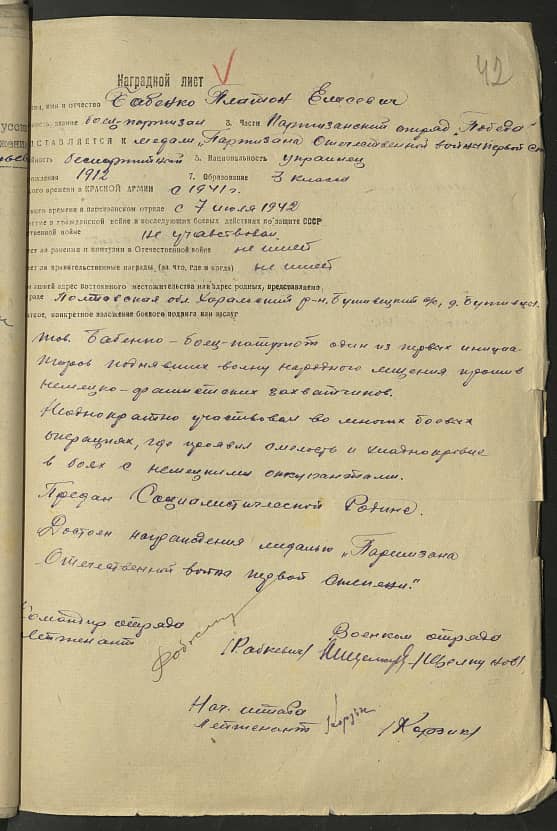 42
Наградной лист
имя и отчество Бабенко Платон Власович
звание боец-партизан 3. Части Партизанский отряд "Победа"
СТАВЛЯЕТСЯ К медали "Партизана Отечественной войны первой ст
ийность беспартийный 5. Национальность украинец
ождения 1912 7. Образование 3 класса
кого времени в КРАСНОЙ АРМИИ с 1941 г.
кого времени в партизанском отряде с 7 июля 1942
стие в гражданской войне и последующих боевых действиях по защите СССР
ственной войне не участвовал
еет ли ранения и контузии в Отечественной войне не имеет
еет ли правительственные награды, (за что, где и когда) не имеет
адрес постоянного местожительства или адрес родных, представляемого
граде Полтавская обл. р-н.
раткое, конкретное изложение боевого подвига или заслуг
тов. Бабенко - боец-патриот один из первых инициа
торов поднявших волну народного мщения против
немецко-фашистских захватчиков.
Неоднократно участвовал во многих боевых
операциях, где проявил смелость и хладнокровие
в боях с немецкими оккупантами.
Предан Социалистической Родине.
Достоен награждения медалью "Партизана
Отечественной войны первой степени."
Командир отряда
Лейтенант /Рабкевич/
Военком отряда
Нач. штаба
Лейтенант